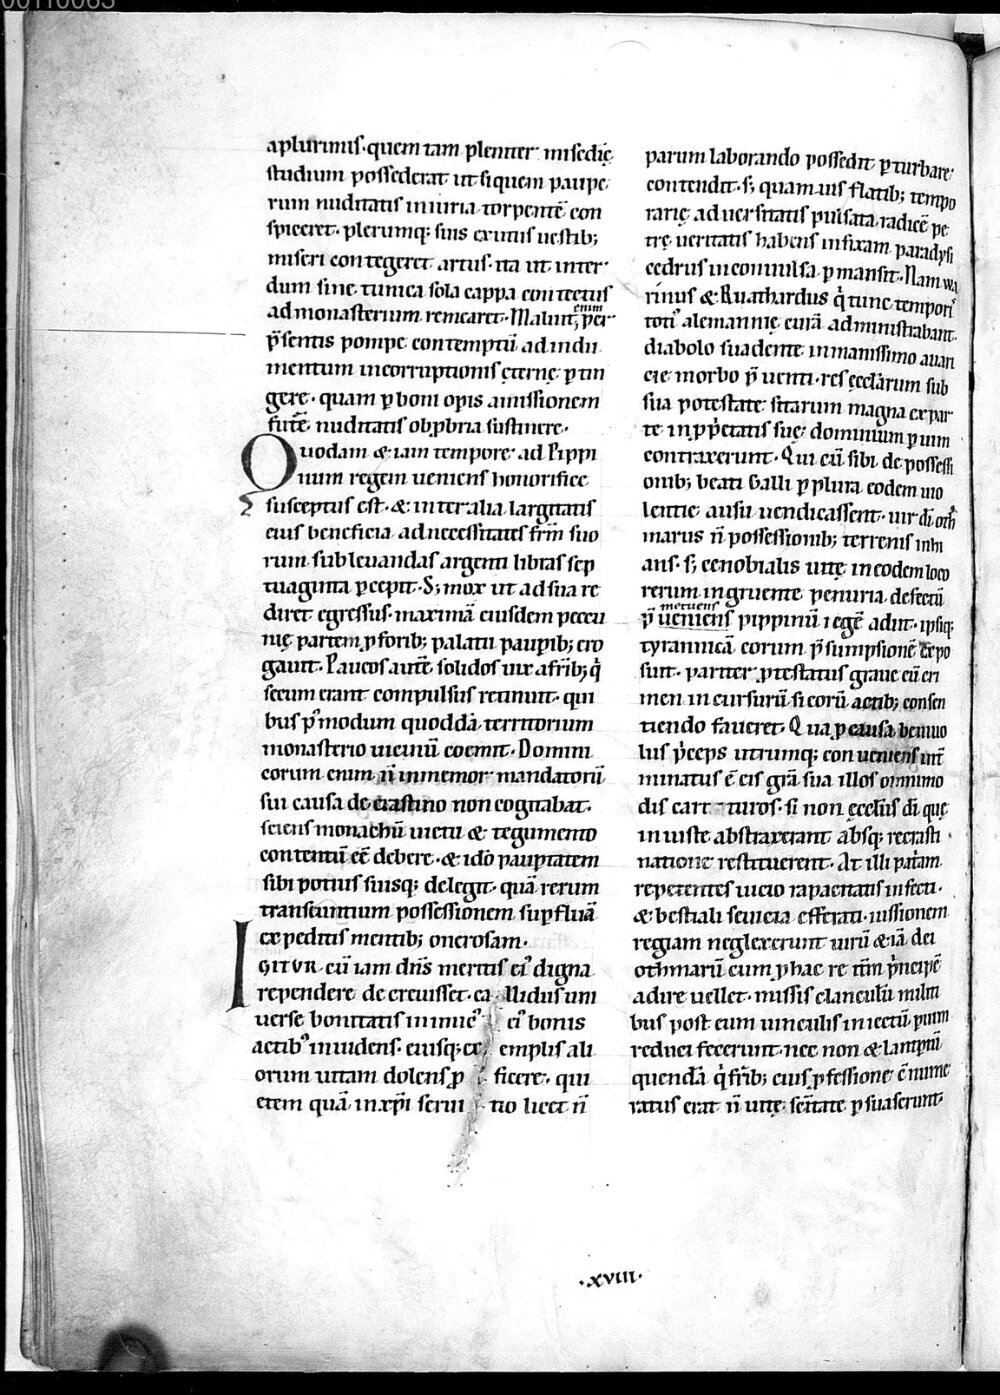 00110063
a plurimis· quem tam pleniter misedię
studium possederat ut si quem paupe
rum nuditatis iniuria torpentē con
spiceret· plerumq; suis exutus uestib;
miseri contegeret artus· ita ut inter
dum sine tunica sola cappa contectus
ad monasterium remearet· Maluit; enim per
p̄sentis pompę contemptū ad indu
mentum incorruptionis ęternę ptin
gere· quam p boni opis amissionem
futē nuditatis obpbria sustinere·
Quodam & iam tempore ad Pippi
num regem ueniens honorifice
susceptus est· & inter alia largitatis
eius beneficia ad necessitates frm̄ suo
rum subleuandas argenti libras sep
tuaginta pcepit· S; mox ut ad sua re
diret egressus· maximā eiusdem pecu
nię partem p forib; palatii paupib; ero
gauit· Paucos autē solidos uix a frīb; q̄
secum erant compulsus retinuit· qui
bus p̄modum quoddā territorium
monasterio uicinū coemit· Domini
corum enim n̄ inmemor mandatorū
sui causa de crastino non cogitabat·
sciens monachū uictu & tegumento
contentū eē debere· & idō pauptatem
sibi potius suisq; delegit· quā rerum
transeuntium possessionem supfluā
expeditis mentib; onerosam·
IGITVR cū iam dn̄s meritis ei᾿ digna
rependere decreuisset· callidus uni
uerse bonitatis inimic᾿ ei᾿ bonis
actib᾿ inuidens· eiusq; exemplis ali
orum uitam dolens pficere· qui
etem quā in xp̄i seruitio licet n̄
parum laborando possedit pturbare
contendit· s; quamuis flatib; tempo
rarię aduersitatis pulsata radicē pe
trę ueritatis habens infixam paradysi
cedrus inconuulsa pmansit· Nam wa
rinus & Ruathardus q̄ tunc tempori᾿
toti᾿ alemannię curā administrabant·
diabolo suadente inmanissimo auari
cie morbo p̄uenti· res ęcclārum sub
sua potestate sitarum magna ex par
te in pp̄etatis suę dominium puim
contraxerunt· Qui cū sibi de possessi
onib; beati Galli p plura eodem uio
lentie ausu uendicassent· uir dī oth
marus n̄ possessionib; terrenis inhi
ans· s; cenobialis uitę in eodem loco
rerum ingruente penuria defectū
metuens
p̄ueniens pippinū regē adiit· ipsiq;
tyrannicā eorum p̄sumpsionē expo
suit· pariter p testatus graue eū cri
men incursurū si eorū actib; consen
tiendo faueret· Qua p causa beniuo
lus p̄ceps utrumq; conueniens urī
minatus ē eis grā sua illos omnimo
dis carituros· si non ęcclīis dī quę
iniuste abstraxerant absq; recrasti
natione restituerent· At illi patam
repetentes uicio rapacitatis infecti·
& bestiali seuicia efferati· iussionem
regiam neglexerunt uirū & iā dei
othmarū cum p hac re itm̄ p̄ncipē
adire uellet· missis clanculū militi
bus post eum uinculis iniectū puim
reduci fecerunt· nec non & lantpni
quendā q̄ frīb; eius pfessione c̄nume
ratus erat n̄ uitę sc̄itate psuaserunt·
·xviii·